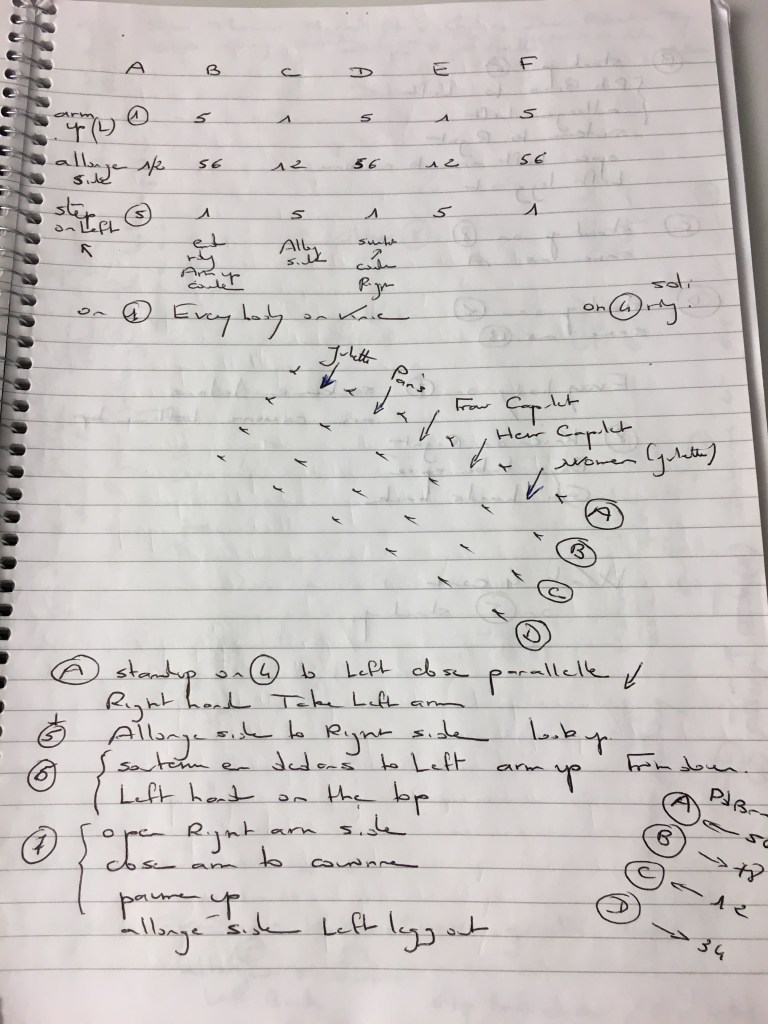 A B C D E F
arm up (L) ① 5 1 5 1 5
allonge side 1/2 56 12 56 12 56
step on Left ⑤ 1 5 1 5 1
Arm up
side
on ① Every body on
on ④
Juliette
Paris
Frau Capulet
Herr Capulet
women (juliette)
Ⓐ
Ⓑ
Ⓒ
Ⓓ
Ⓐ standup on ④ to Left close parallelle
Right hand Take Left arm
⑤ Allonge side to Right side look up
⑥ soutenu en dedans to Left arm up From down.
Left hand on the top
⑦ open Right arm side
close arm to couronne
paume up
allonge side Left legg out
Ⓐ
Ⓑ 78
Ⓒ 12
Ⓓ 34